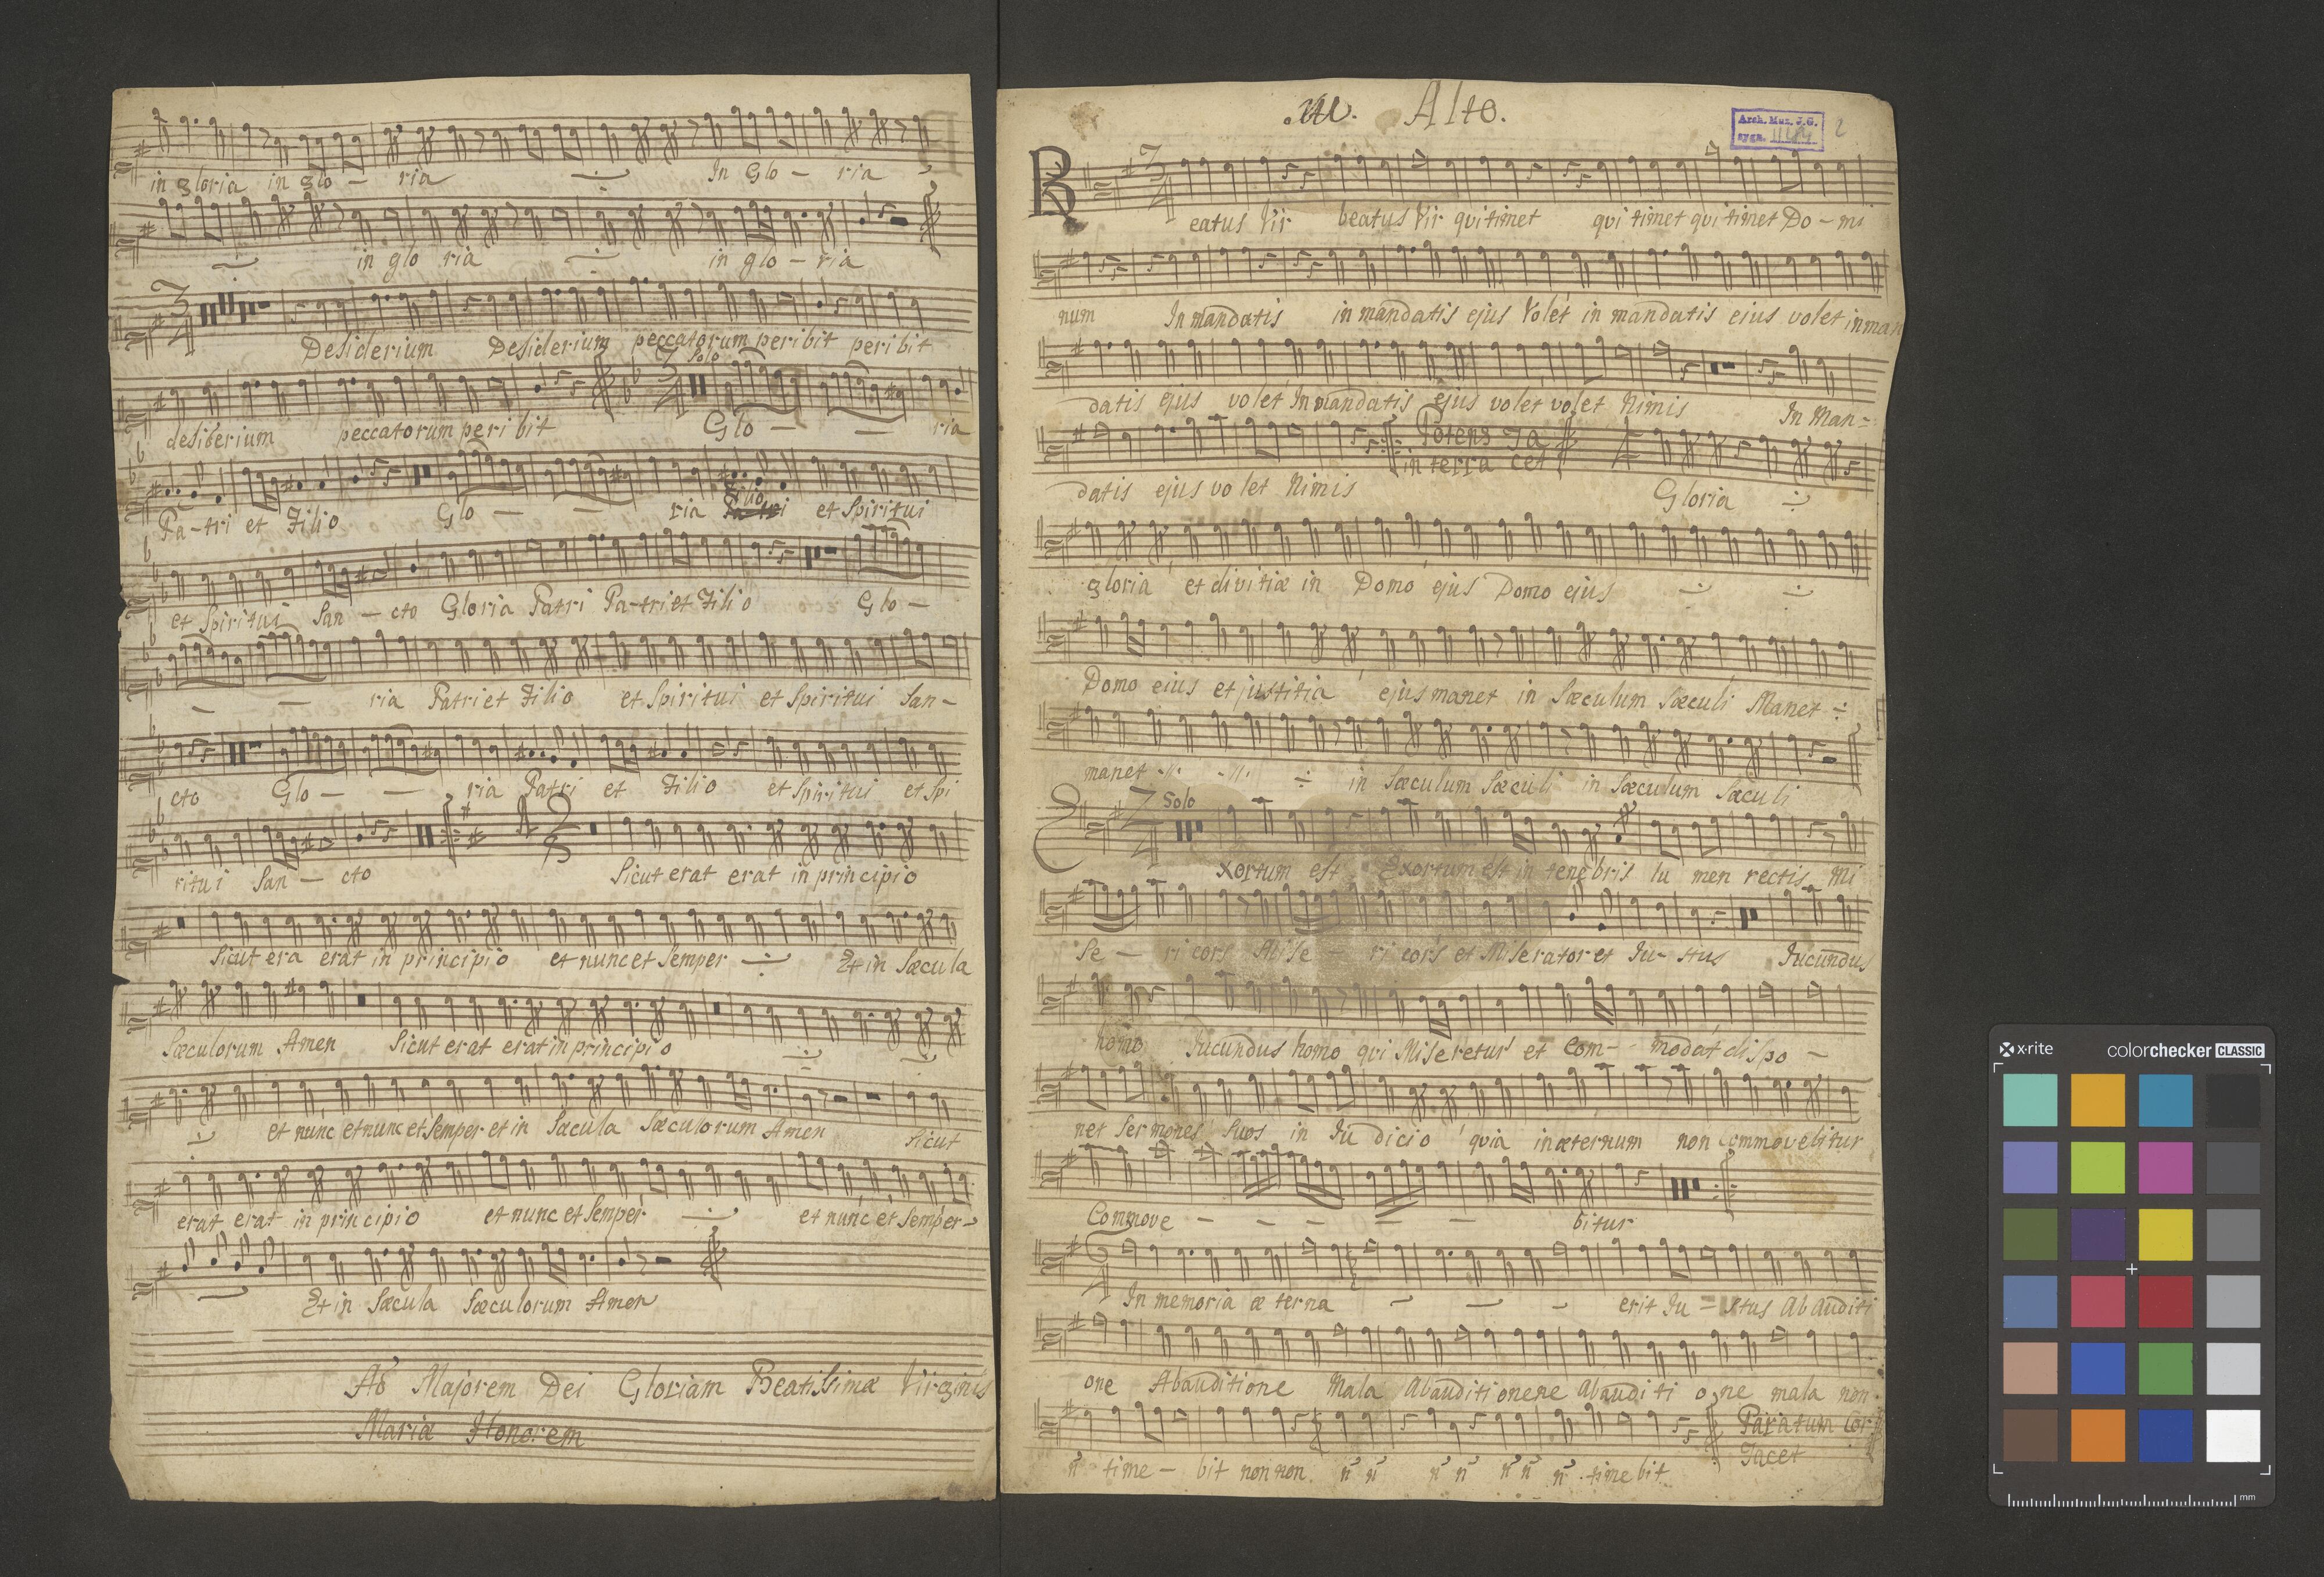 in gloria in glo - ria In Glo - ria
in glo ria in glo - ria
Desiderium Desiderium peccatorum peribit peribit
Solo
desiderium peccatorum peribit Glo - - ria
Pa-tri et Filio Glo - - ria Filio et Spiritui
et Spiritui San - cto Gloria Patri Pa-tri et Filio Glo -
- - ria Patri et Filio et Spiritui et Spiritui San-
cto Glo - - ria Patri et Filio et Spiritui et Spi
ritui San - cto Sicut erat erat in principio
Sicut era erat in principio et nunc et Semper Et in Sæcula
Sæculorum Amen Sicut erat erat in principio
et nunc et nunc et Semper et in Sæcula Sæculorum Amen Sicut
erat erat in principio et nunc et Semper et nunc et Semper
Et in Sæcula Sæculorum Amen
Ad Majorem Dei Gloriam Beatissimæ Virginis
Mariæ Honorem
Alto.
Arch. Muz. J.G.
sygn. 2
Beatus Vir beatus Vir qui timet qui timet qui timet Do - mi
num In mandatis in mandatis ejus Volet in mandatis eius volet in man
datis ejus volet In mandatis ejus volet volet Nimis In Man=
Potens Ta
in terra cet
datis ejus volet Nimis Gloria
gloria et divitiæ in Domo ejus Domo ejus
Domo eius et justitia ejus manet in Sæculum Sæculi Manet
manet in Sæculum Sæculi in Sæculum Sæculi
Solo
Exortum est Exortum est in tenebris lu men rectis Mi
Se - ri cors Mise - ri cors et Miserator et Ju- stus Jucundus
homo Jucundus homo qui Miseretur et Com- modat dispo -
net Sermones Suos in Ju dicio quia in æternum non Commovebitur
Commove - - - - - bitur
In memoria æ terna - - - erit Ju = stus Ab auditi
one Ab auditione Mala Ab auditionene Ab auditi one mala non
Paratum Cor
Tacet
time - bit non non timebit